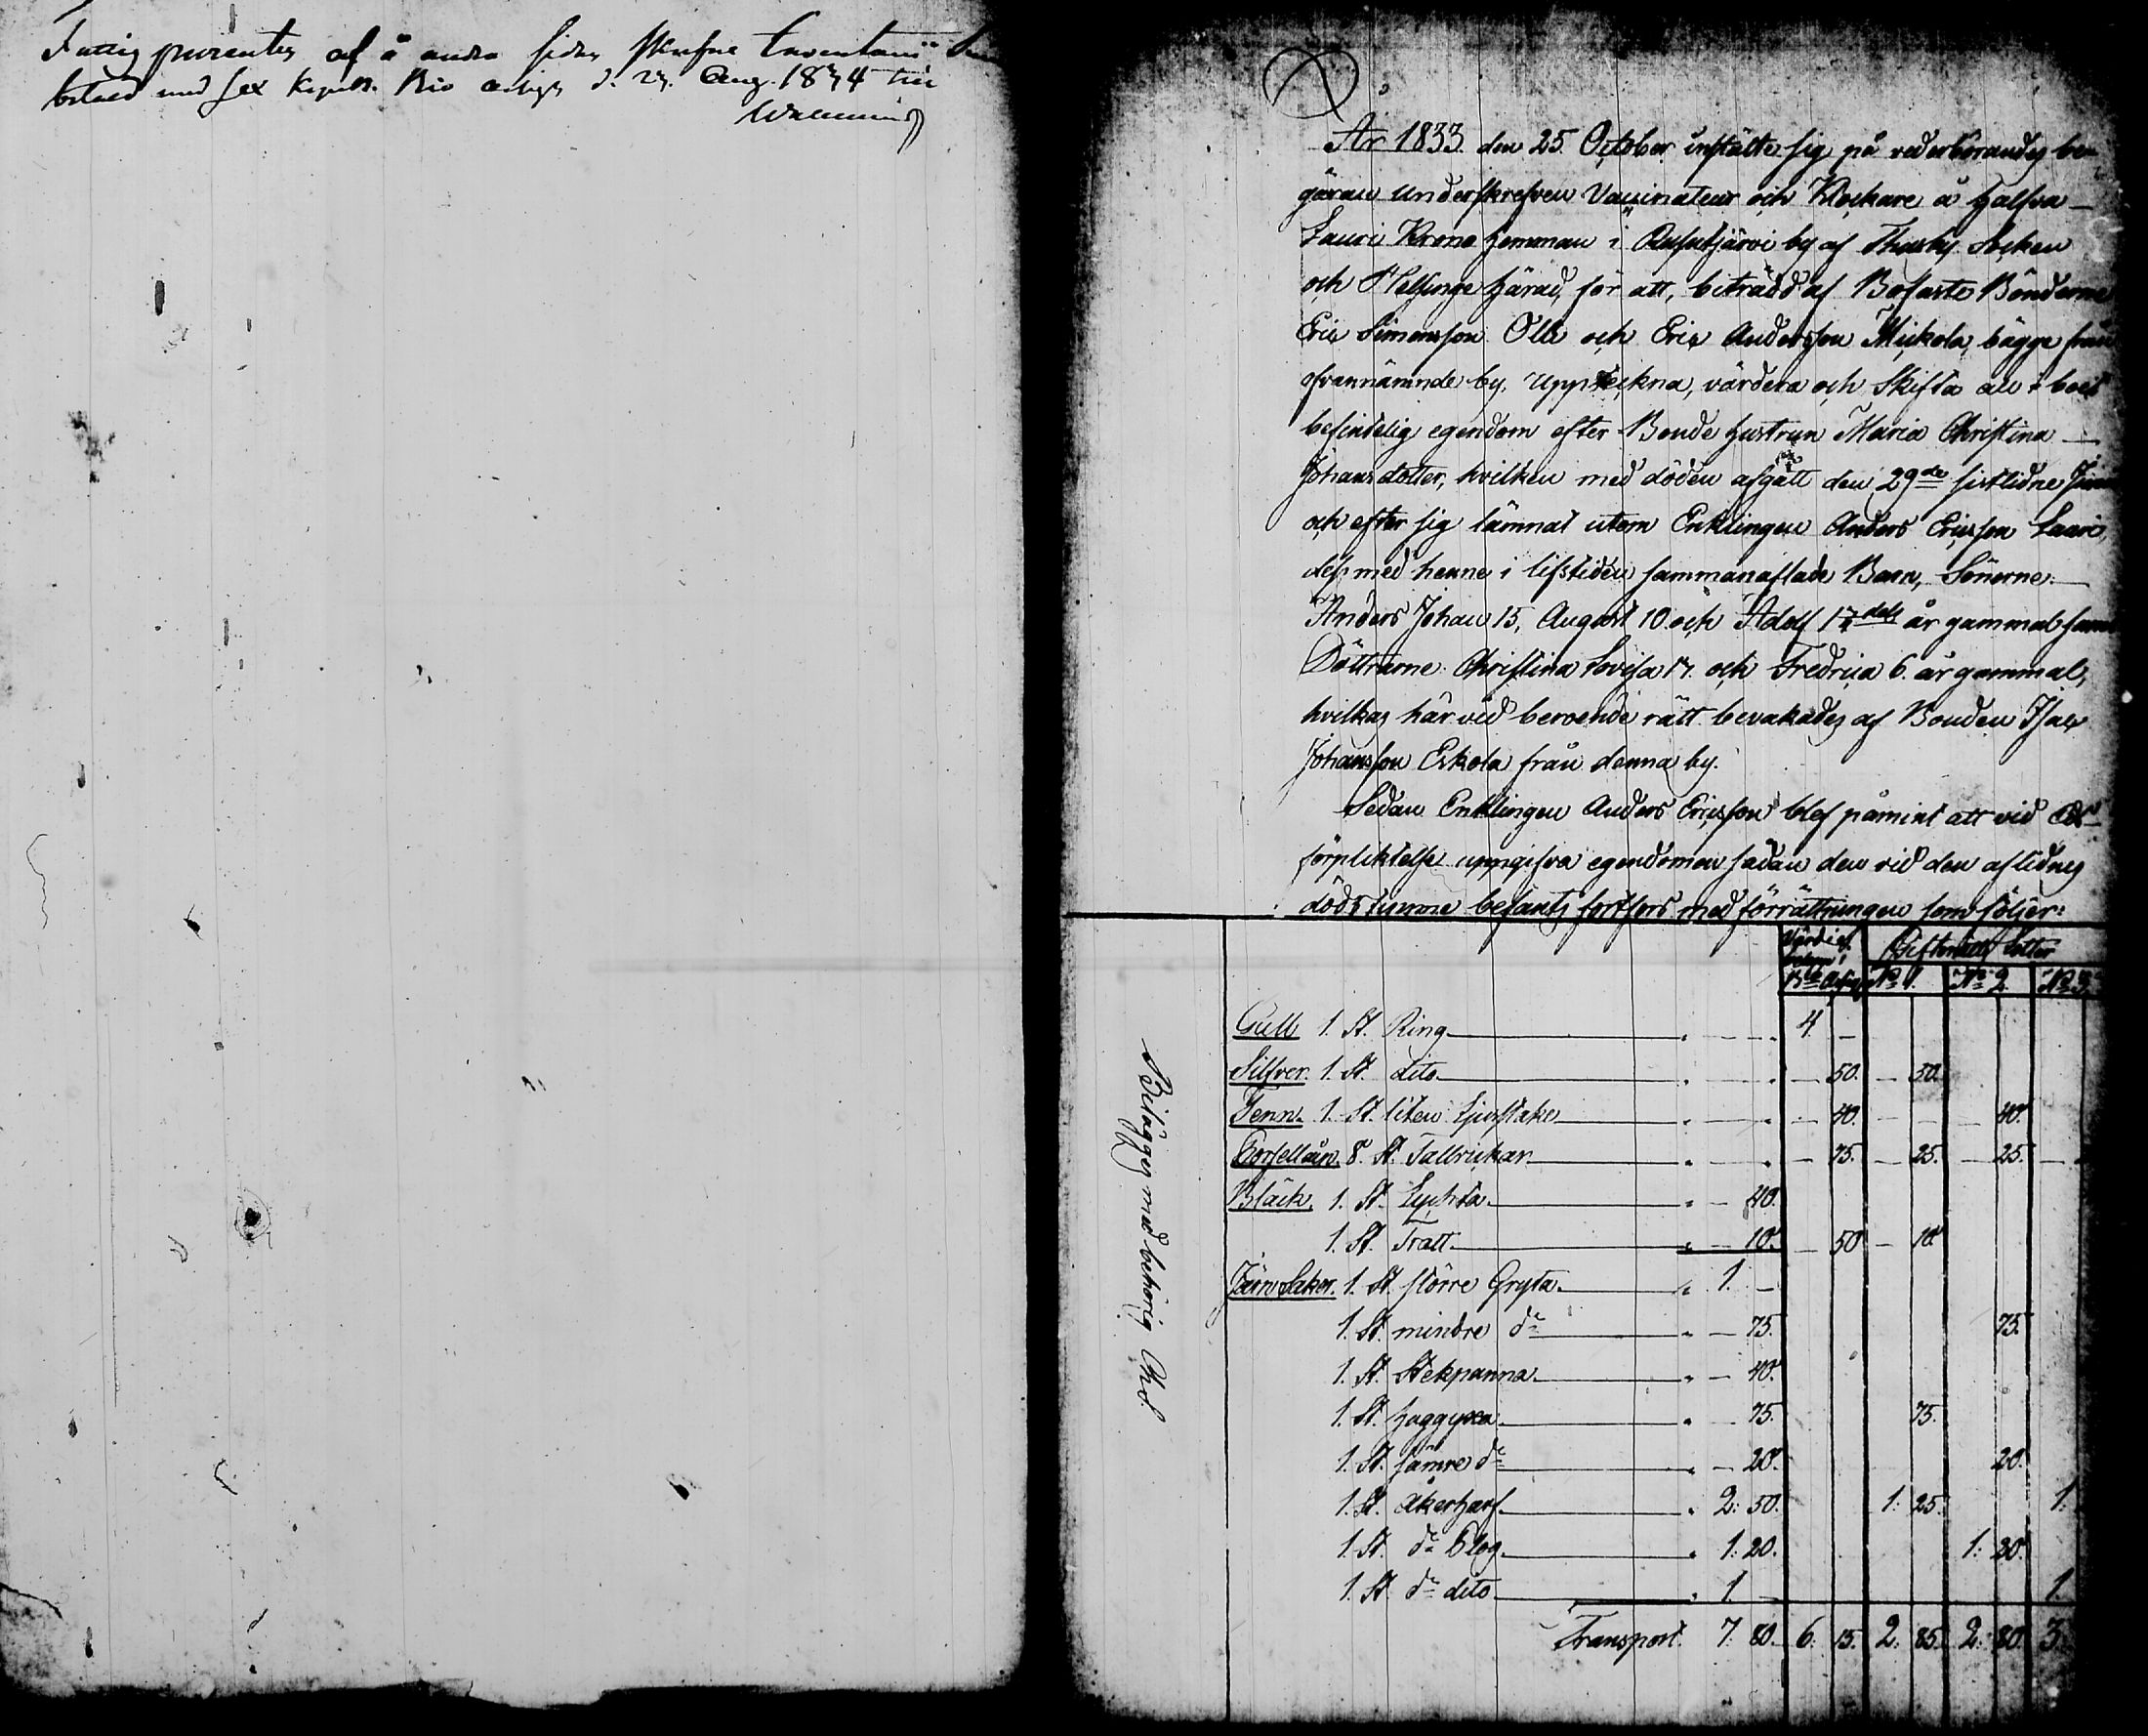 Fattig procenten af å andra sidan skrefne Inventarii
betald med sex kopek. Bro assign d. 27. Aug. 1834
År 1833 den 25 October instälte sig på vederbörandes be-
gäran underskrefven Vaccinateur och Klockare å halfva
Lauri Krono hemman i Rusutjärvi by af Thusby Socken
och Helsinge härad, för att, biträdd af Bofaste Bönderne
Eric Simonsson Olli och Eric Andersson Mickola, bägge från
ofvannämnde by, uppteckna, värdera och skifta all i boet
befintelig egendom efter Bonde hustrun Maria Christina
Johansdotter, hvilken med döden afgått den 29de sistlidne
och efter sig lämnat utom Enklingen Anders Ericsson Lauri,
dess med henne i lifstiden sammanaflade Barn, Sönerne
Anders Johan 15, August 10 och Adolf år gammal samt
Döttrarne Christina Lovisa 17. och Fredrica 6. år gammal,
hvilkas härvid beroende rätt bevakades af Bonden Isac
Johansson Eskola från denna by.
Sedan Enklingen Anders Ericsson blef påmint att vid Eds
förpliktelse uppgifva egendomen sådan den vid den aflidnes
dödstimme befants fortfors med förrättningen som följer:
Värdie Giftorätts Lotter
Rbl No 1. No 2. No 3.
Gull 1. St. Ring 4. —
Silfver. 1. St. dito — 50. — 50.
Tenn. 1. St. liten Ljusstake — 40. — 40.
Porsellain. 8. St. Tallrickar — 75. — 25. — 25. —
Bläck. 1. St. Lychta — 40.
1. St. Tratt — 10. — 50 — 10.
Järn Saker. 1. St. större Gryta 1. —
1. St. mindre do — 75. 75.
1. St. Stekpanna — 40.
1. St. huggyxa — 75. 75.
1. St. sämre do — 20. 20.
1. St. åkerharf 2: 50. 1: 25. 1.
1. St. do Plog 1: 20. 1: 20.
1. St. do dito 1 — 1.
Transport. 7. 80. 6: 15. 2: 85. 2: 80. 3.
Belägges med behörig Ch.